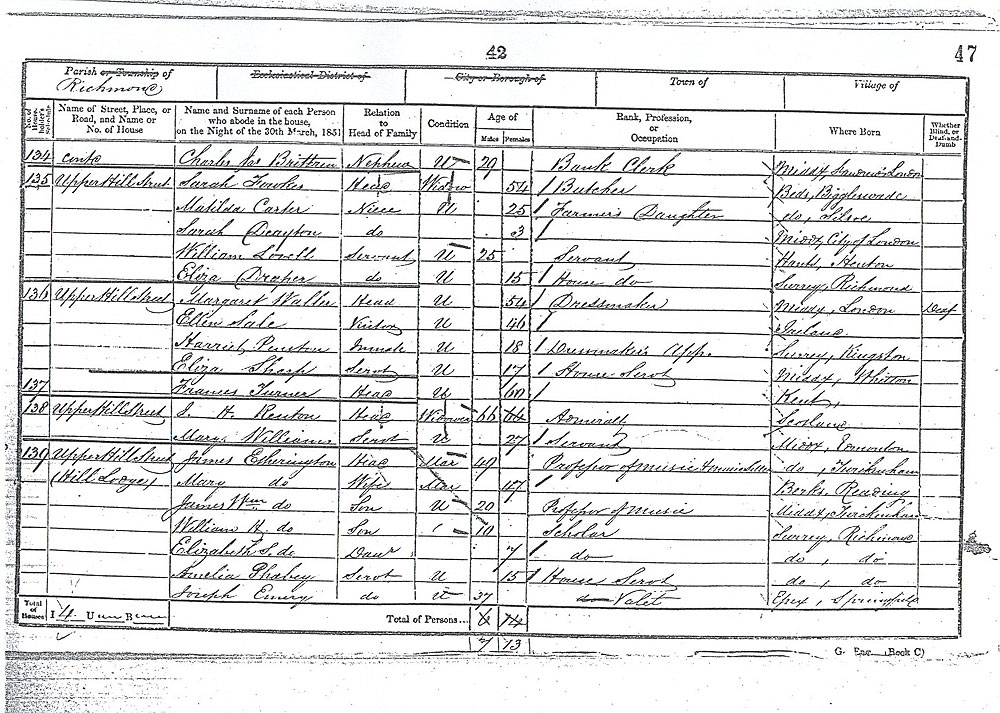 42
47
Parish or Township of Ecclesiastical District of City or Borough of Town of Village of
Richmond
No. of House-holder's Schedule Name of Street, Place, or Road, and Name or No. of House Name and Surname of each Person who abode in the house, on the Night of the 30th March, 1851 Relation to Head of Family Condition Age of Males Females Rank, Profession, or Occupation Where Born Whether Blind, or Deaf-and-Dumb
134 Charles Jas Nephew U 29 Bank Clerk Middx London
135 Upper Hill Street Sarah Fowkes Head Widow 54 Butcher Beds, Bigglewade
Matilda Carter Niece U 25 Farmer's Daughter do, Silsoe
Sarah Deayton do 3 Middx City of London
William Lovell Servant U 25 Servant Hants,
Eliza Draper do U 15 House do Surrey, Richmond
136 Upper Hill Street Margaret Waller Head U 54 Dressmaker Middx, London Deaf
Ellen Sale Visitor U 46 Ireland
Harriet Inmate U 18 Dressmaker's App. Surrey, Kingston
Eliza Sharp Servt U 17 House Servt Middx, Whitton
137 Frances Turner Head U 60 Kent,
138 Upper Hill Street H Renton Head Widower 66 64 Admiralty Scotland
Mary Williams Servt U 27 Servant Middx, Edmonton
139 Upper Hill Street James Etherington Head Mar 49 Professor of music & do, Twickenham
(Hill Lodge) Mary do Wife Mar 47 Berks, Reading
James Wm do Son U 20 Professor of music Middx, Twickenham
William H. do Son 10 Scholar Surrey, Richmond
Elizabeth S. do Daur 7 do do, do
Amelia Servt U 15 House Servt do, do
Joseph Emery do U 37 do Valet Essex, Springfield
Total of Houses I 4 U B Total of Persons... 6 14
7 13
(Book C)